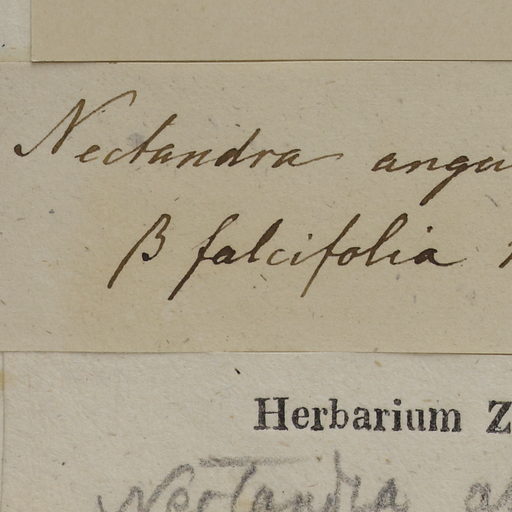 Nectandra angu
β falcifolia
Herbarium Z
Nectandra a